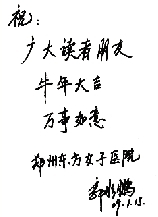 祝:
广大读者朋友
牛年大吉
万事如意
郑州东方女子医院
09.1.15